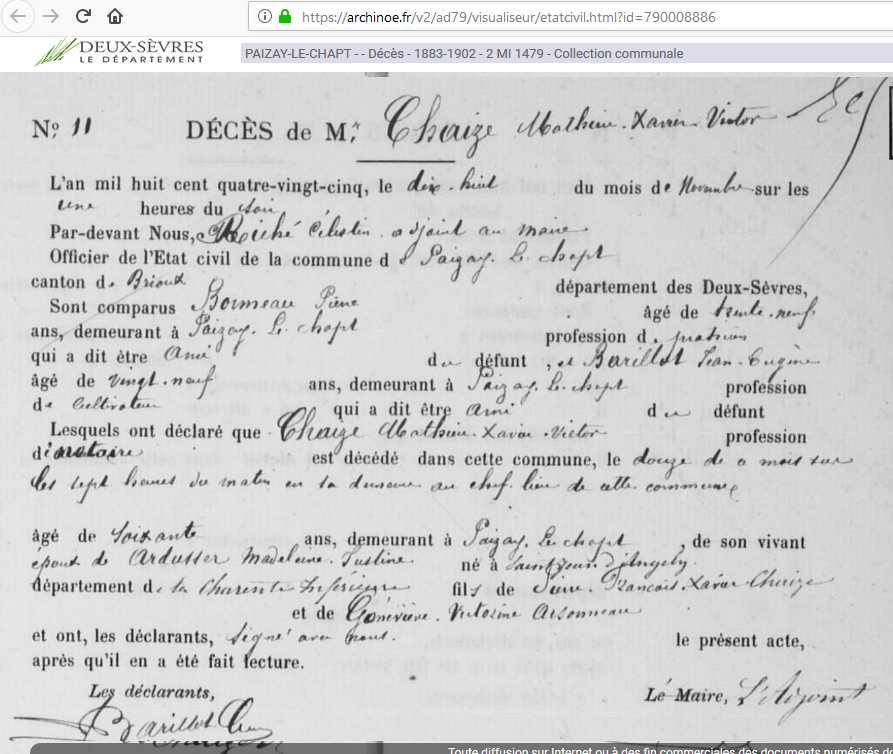 https://archinoe.fr/v2/ad79/visualiseur/etatcivil.html?id=790008886
DEUX-SÈVRES
LE DÉPARTEMENT
PAIZAY-LE-CHAPT - - Décès - 1883-1902 - 2 MI 1479 - Collection communale
No 11 DÉCÈS de M.r Chaize Mathieu. Xavier. Victor
L'an mil huit cent quatre-vingt-cinq, le dix-huit du mois de Novembre sur les
une heures du soir
Par-devant Nous, Célestin adjoint au maire
Officier de l'Etat civil de la commune de Paizay. Le. chapt
canton de Brioux département des Deux-Sèvres,
Sont comparus Pierre âgé de trente-neuf
ans, demeurant à Paizay. Le. chapt profession de praticien
qui a dit être Ami du défunt, et Barillot Jean-Eugène
âgé de vingt-neuf ans, demeurant à Paizay. Le. chapt profession
de Cultivateur qui a dit être ami du défunt
Lesquels ont déclaré que Chaize Mathieu. Xavier. Victor profession
de notaire est décédé dans cette commune, le douze de ce mois sur
les sept heures du matin en sa demeure au chef. lieu de cette commune
âgé de soixante ans, demeurant à Paizay. Le. chapt, de son vivant
époux de Ardusser Madeleine. Justine né à Saint Jean d'Angely
département de la Charente Inférieure fils de Pierre. François. Xavier Chaize
et de Géneviève. Victorine Arsonneau
et ont, les déclarants, signé avec nous. le présent acte,
après qu'il en a été fait lecture.
Les déclarants, Lé Maire, L'Adjoint
Barillot
Toute diffusion sur Internet ou à des fin commerciales des documents numérisés de